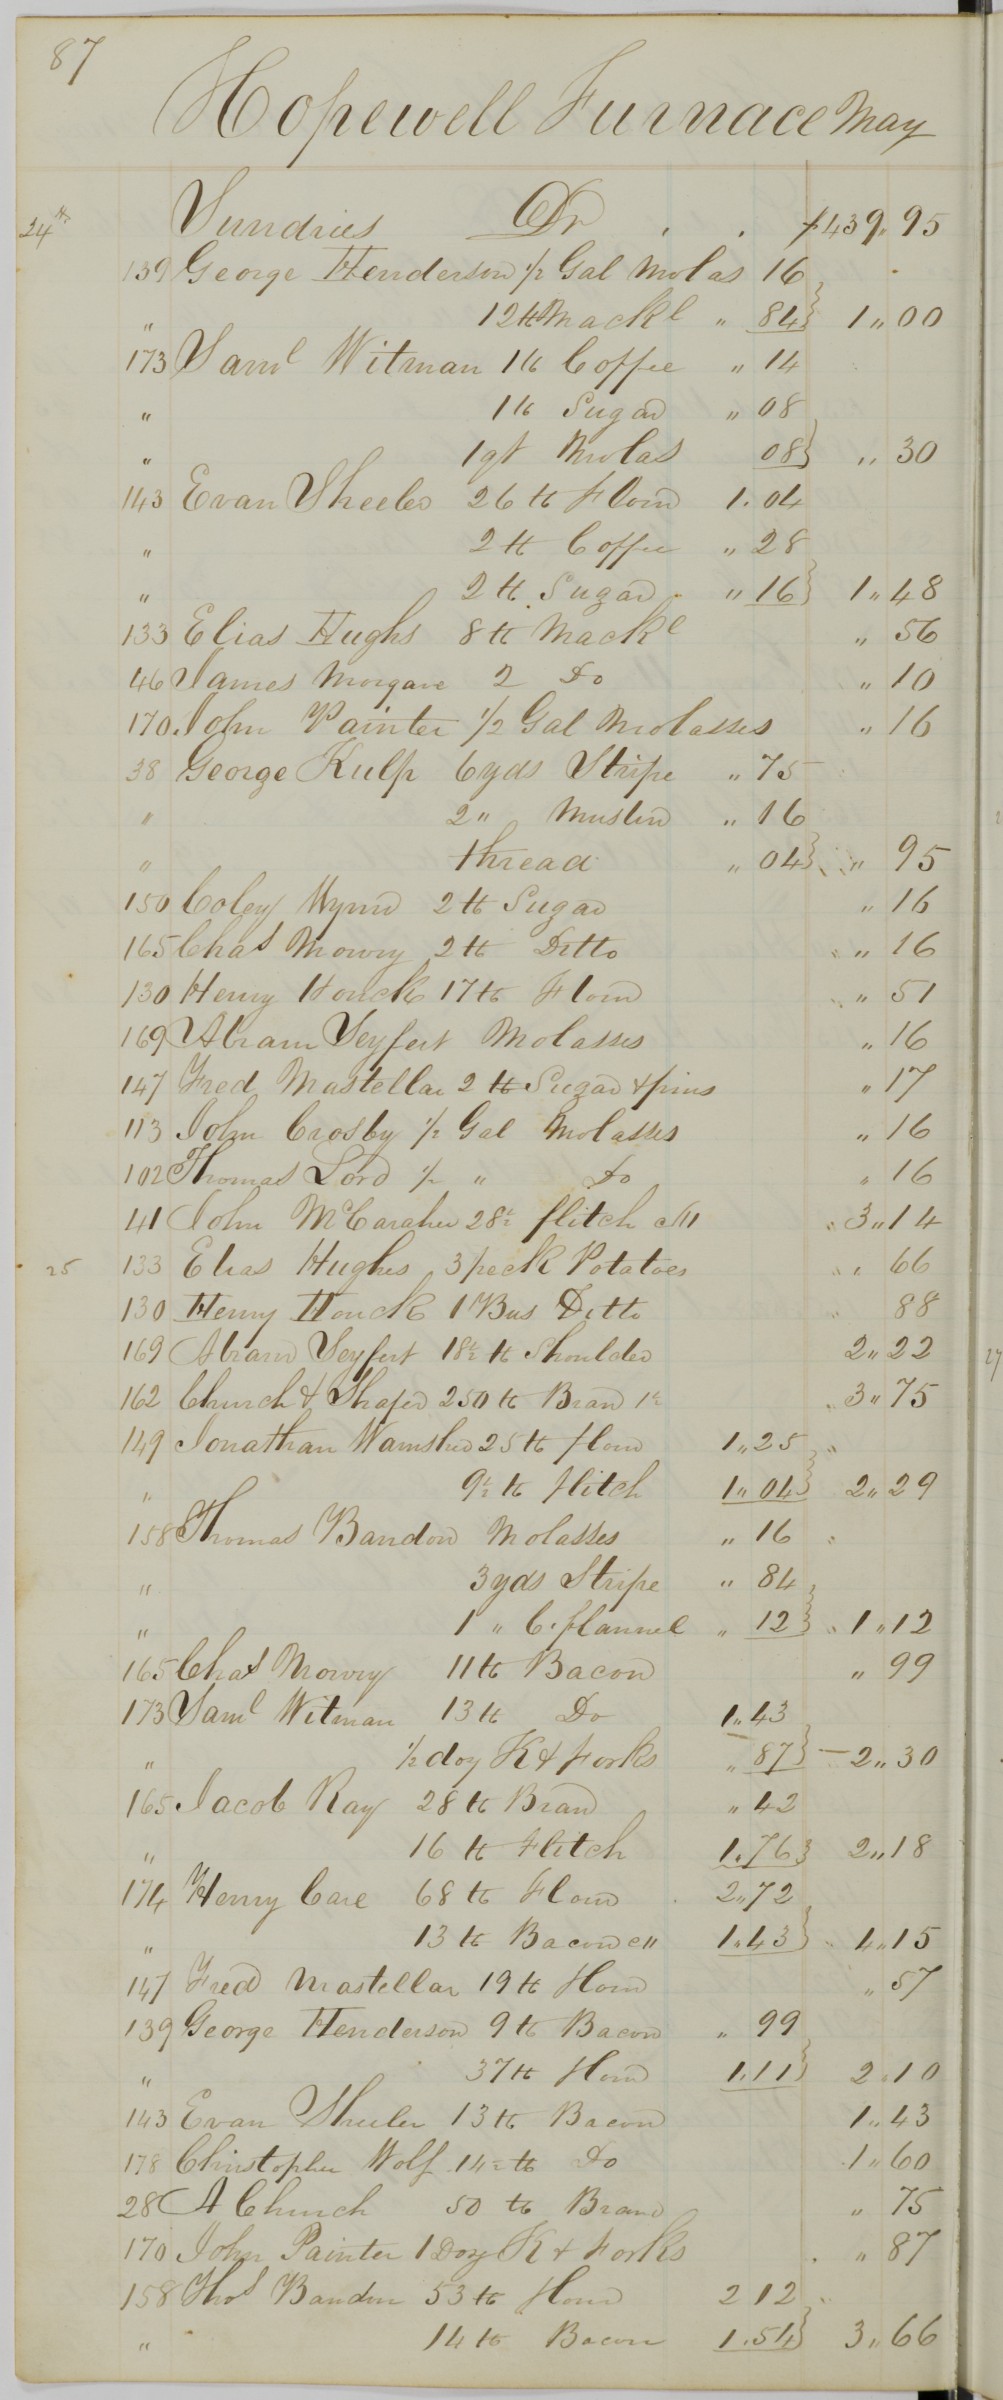 87
Hopewell Furnace May
24th Sundries Dr . . $439,,95
139 George Henderson ½ Gal Molas 16
,, 12 lb Mackl ,, 84 } 1,,00
173 Saml Witman 1 lb Coffee ,, 14
,, 1 lb Sugar ,, 08
,, 1 qt Molas 08 } ,, 30
143 Evan Sheeler 26 lb Flour 1.04
,, 2 lb Coffee ,, 28
,, 2 lb Sugar ,, 16 } 1,,48
133 Elias Hughs 8 lb Mackl ,, 56
46 James Morgan 2 Do ,, 10
170 John Painter 1/2 Gal Molasses ,, 16
38 George Kulp 6 yds Stripe ,, 75
,, 2 ,, Muslin ,, 16
,, thread ,, 04 } ,, 95
150 Coley Wynn 2 lb Sugar ,, 16
165 Chas Mowry 2 lb Ditto ,, 16
130 Henry Houck 17 lb Flour ,, 51
169 Abram Seyfert Molasses ,, 16
147 Fred Mastellar 2 lb Sugar & pins ,, 17
113 John Crosby ½ Gal Molasses ,, 16
102 Thomas Lord ½ ,, Do ,, 16
41 John McCaraher 28½ flitch @11 3,,14
25 133 Elias Hughes 3 peck Potatoes ,, 66
130 Henry Houck 1 Bus Ditto 88
169 Abram Seyfert 18½ lb Shoulder 2,,22
162 Church & Shafer 250 lb Bran 1½ 3,,75
149 Jonathan Wamsher 25 lb flour 1,,25
,, 9½ lb flitch 1,,04 } 2,,29
158 Thomas Bandon Molasses ,, 16
,, 3 yds Stripe ,, 84
,, 1 ,, C. flannel ,, 12 } 1,,12
165 Chas Mowry 11 lb Bacon ,, 99
173 Saml Witman 13 lb Do 1,,43
,, ½ doz K & Forks ,, 87 } 2,,30
165 Jacob Ray 28 lb Bran ,, 42
,, 16 lb Flitch 1.76 } 2,,18
174 Henry Care 68 lb Flour 2,,72
,, 13 lb Bacon @11 1.43 } 4,,15
147 Fred Mastellar 19 lb flour ,, 57
139 George Henderson 9 lb Bacon ,, 99
,, 37 lb flour 1.11 } 2.10
143 Evan Sheeler 13 lb Bacon 1,,43
178 Christopher Wolf 14½ lb Do 1,,60
28 A Church 50 lb Bran ,, 75
170 John Painter 1 Doz K & Forks ,, 87
158 Thos Bandon 53 lb flour 2 12
,, 14 lb Bacon 1.54 } 3,,66